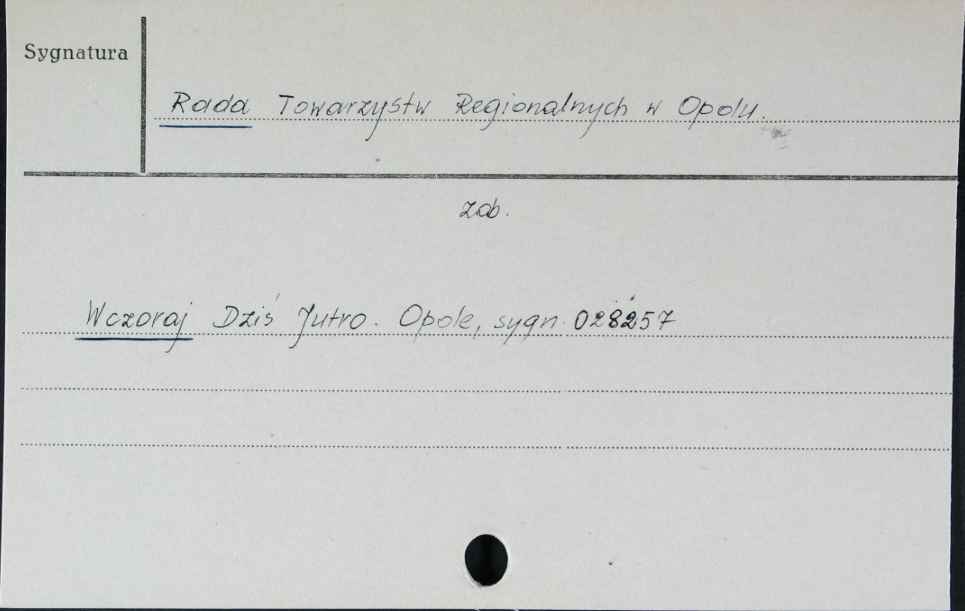 Sygnatura
Rada Towarzystw Regionalnych w Opolu.
zob.
Wczoraj Dziś Jutro. Opole, sygn. 028257